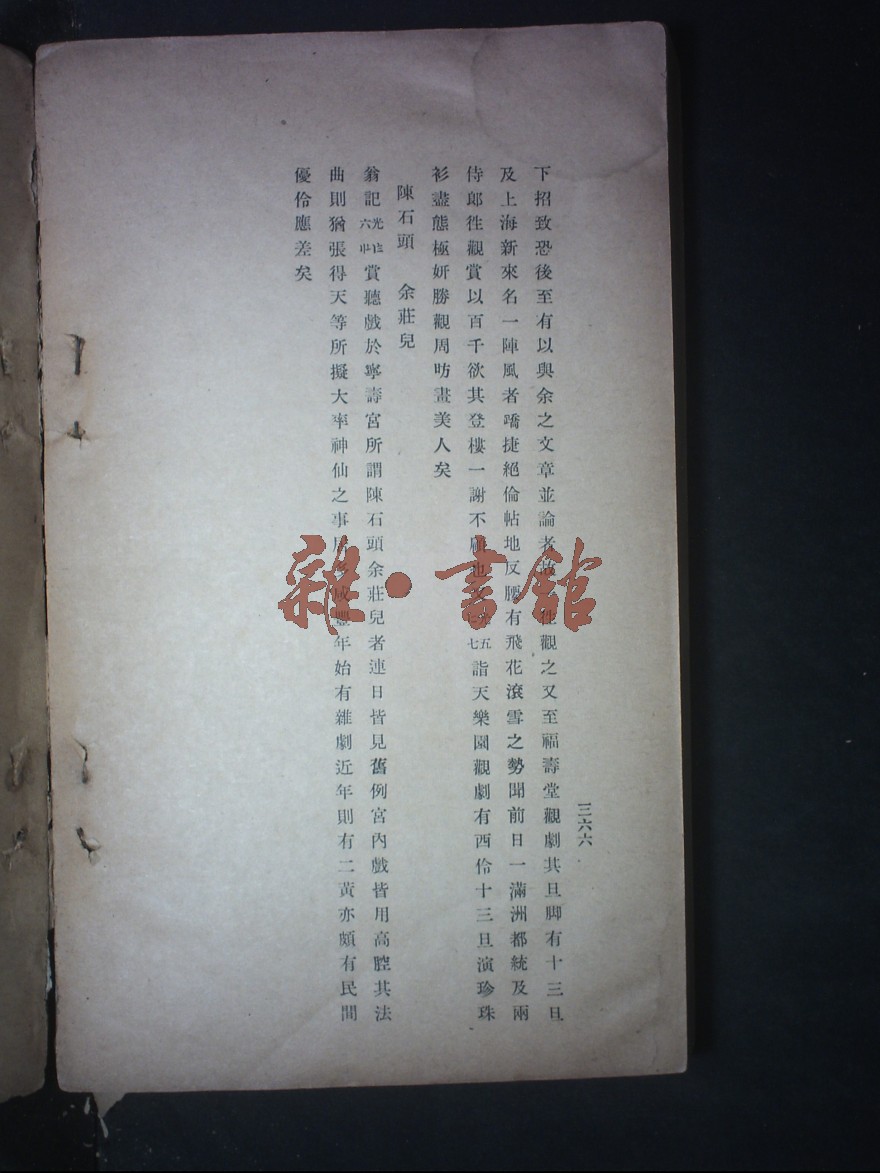 三六六
下招致恐後至有以與余之文章並論者故徃觀之又至福壽堂觀劇其旦脚有十三旦
及上海新來名一陣風者蹻捷絕倫帖地反腰有飛花滾雪之勢聞前日一滿洲都統及兩
侍郎徃觀賞以百千欲其登樓一謝不顧也又光五七七詣天樂園觀劇有西伶十三旦演珍珠
衫盡態極妍勝觀周昉畫美人矣
陳石頭 余莊兒
翁記光六賞聽戲於寧壽宮所謂陳石頭余莊兒者連日皆見舊例宮內戲皆用高腔其法
曲則猶張得天等所擬大率神仙之事咸豐年始有雜劇近年則有二黃亦頗有民間
優伶應差矣
雜·書館